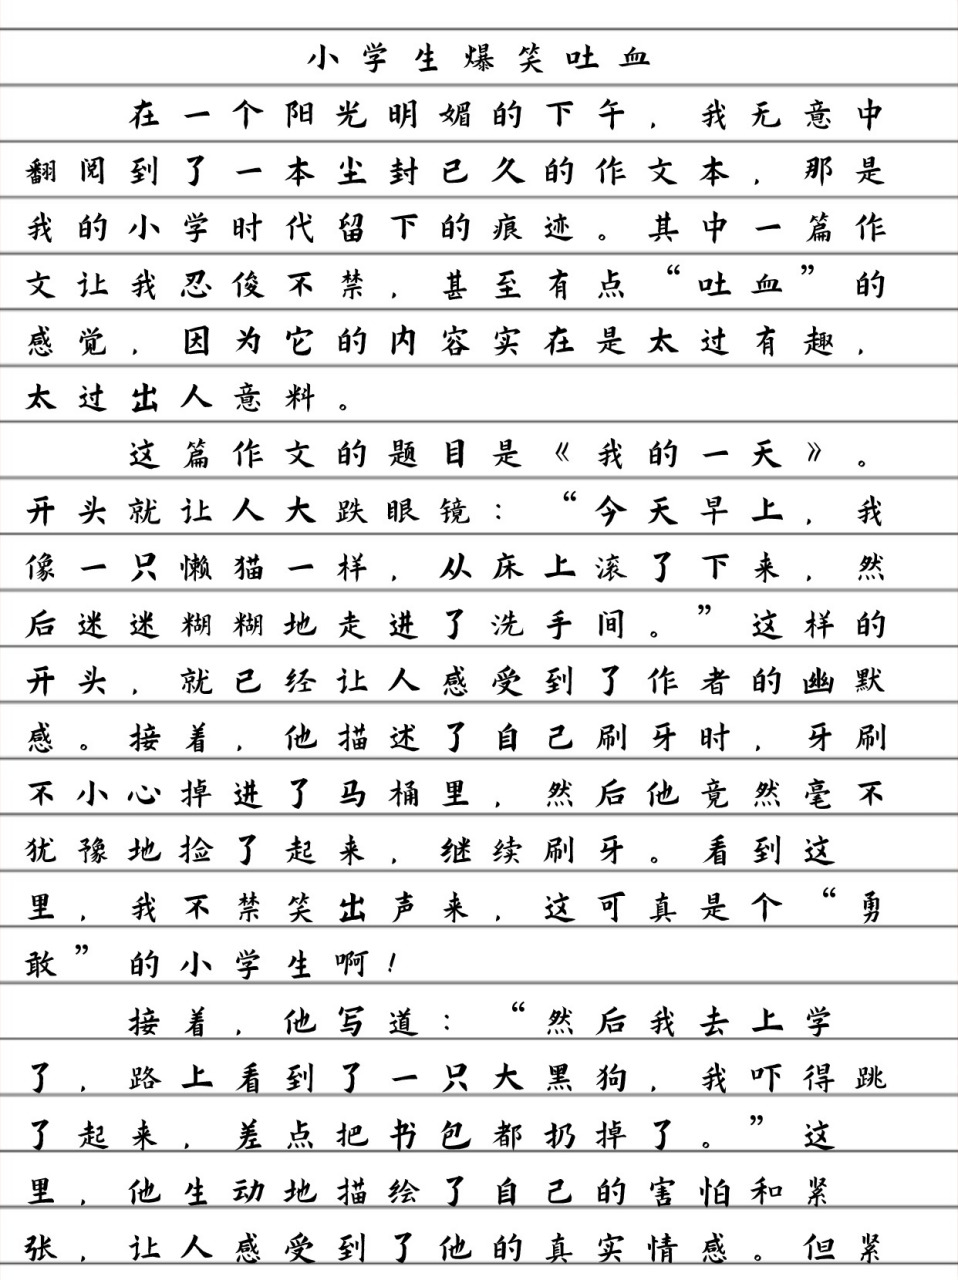 小学生爆笑吐血
在一个阳光明媚的下午，我无意中
翻阅到了一本尘封已久的作文本，那是
我的小学时代留下的痕迹。其中一篇作
文让我忍俊不禁，甚至有点“吐血”的
感觉，因为它的内容实在是太过有趣，
太过出人意料。
这篇作文的题目是《我的一天》。
开头就让人大跌眼镜：“今天早上，我
像一只懒猫一样，从床上滚了下来，然
后迷迷糊糊地走进了洗手间。”这样的
开头，就已经让人感受到了作者的幽默
感。接着，他描述了自己刷牙时，牙刷
不小心掉进了马桶里，然后他竟然毫不
犹豫地捡了起来，继续刷牙。看到这
里，我不禁笑出声来，这可真是个“勇
敢”的小学生啊！
接着，他写道：“然后我去上学
了，路上看到了一只大黑狗，我吓得跳
了起来，差点把书包都扔掉了。”这
里，他生动地描绘了自己的害怕和紧
张，让人感受到了他的真实情感。但紧